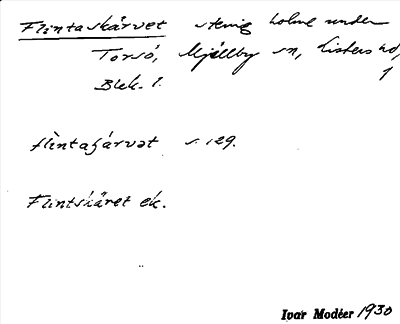 Flintaskärvet stenig holme under
Torsö, Mjällby sn, Listers hd,
Blek. l.
s. 129.
Flintskäret ek.
Ivar Modéer 1930